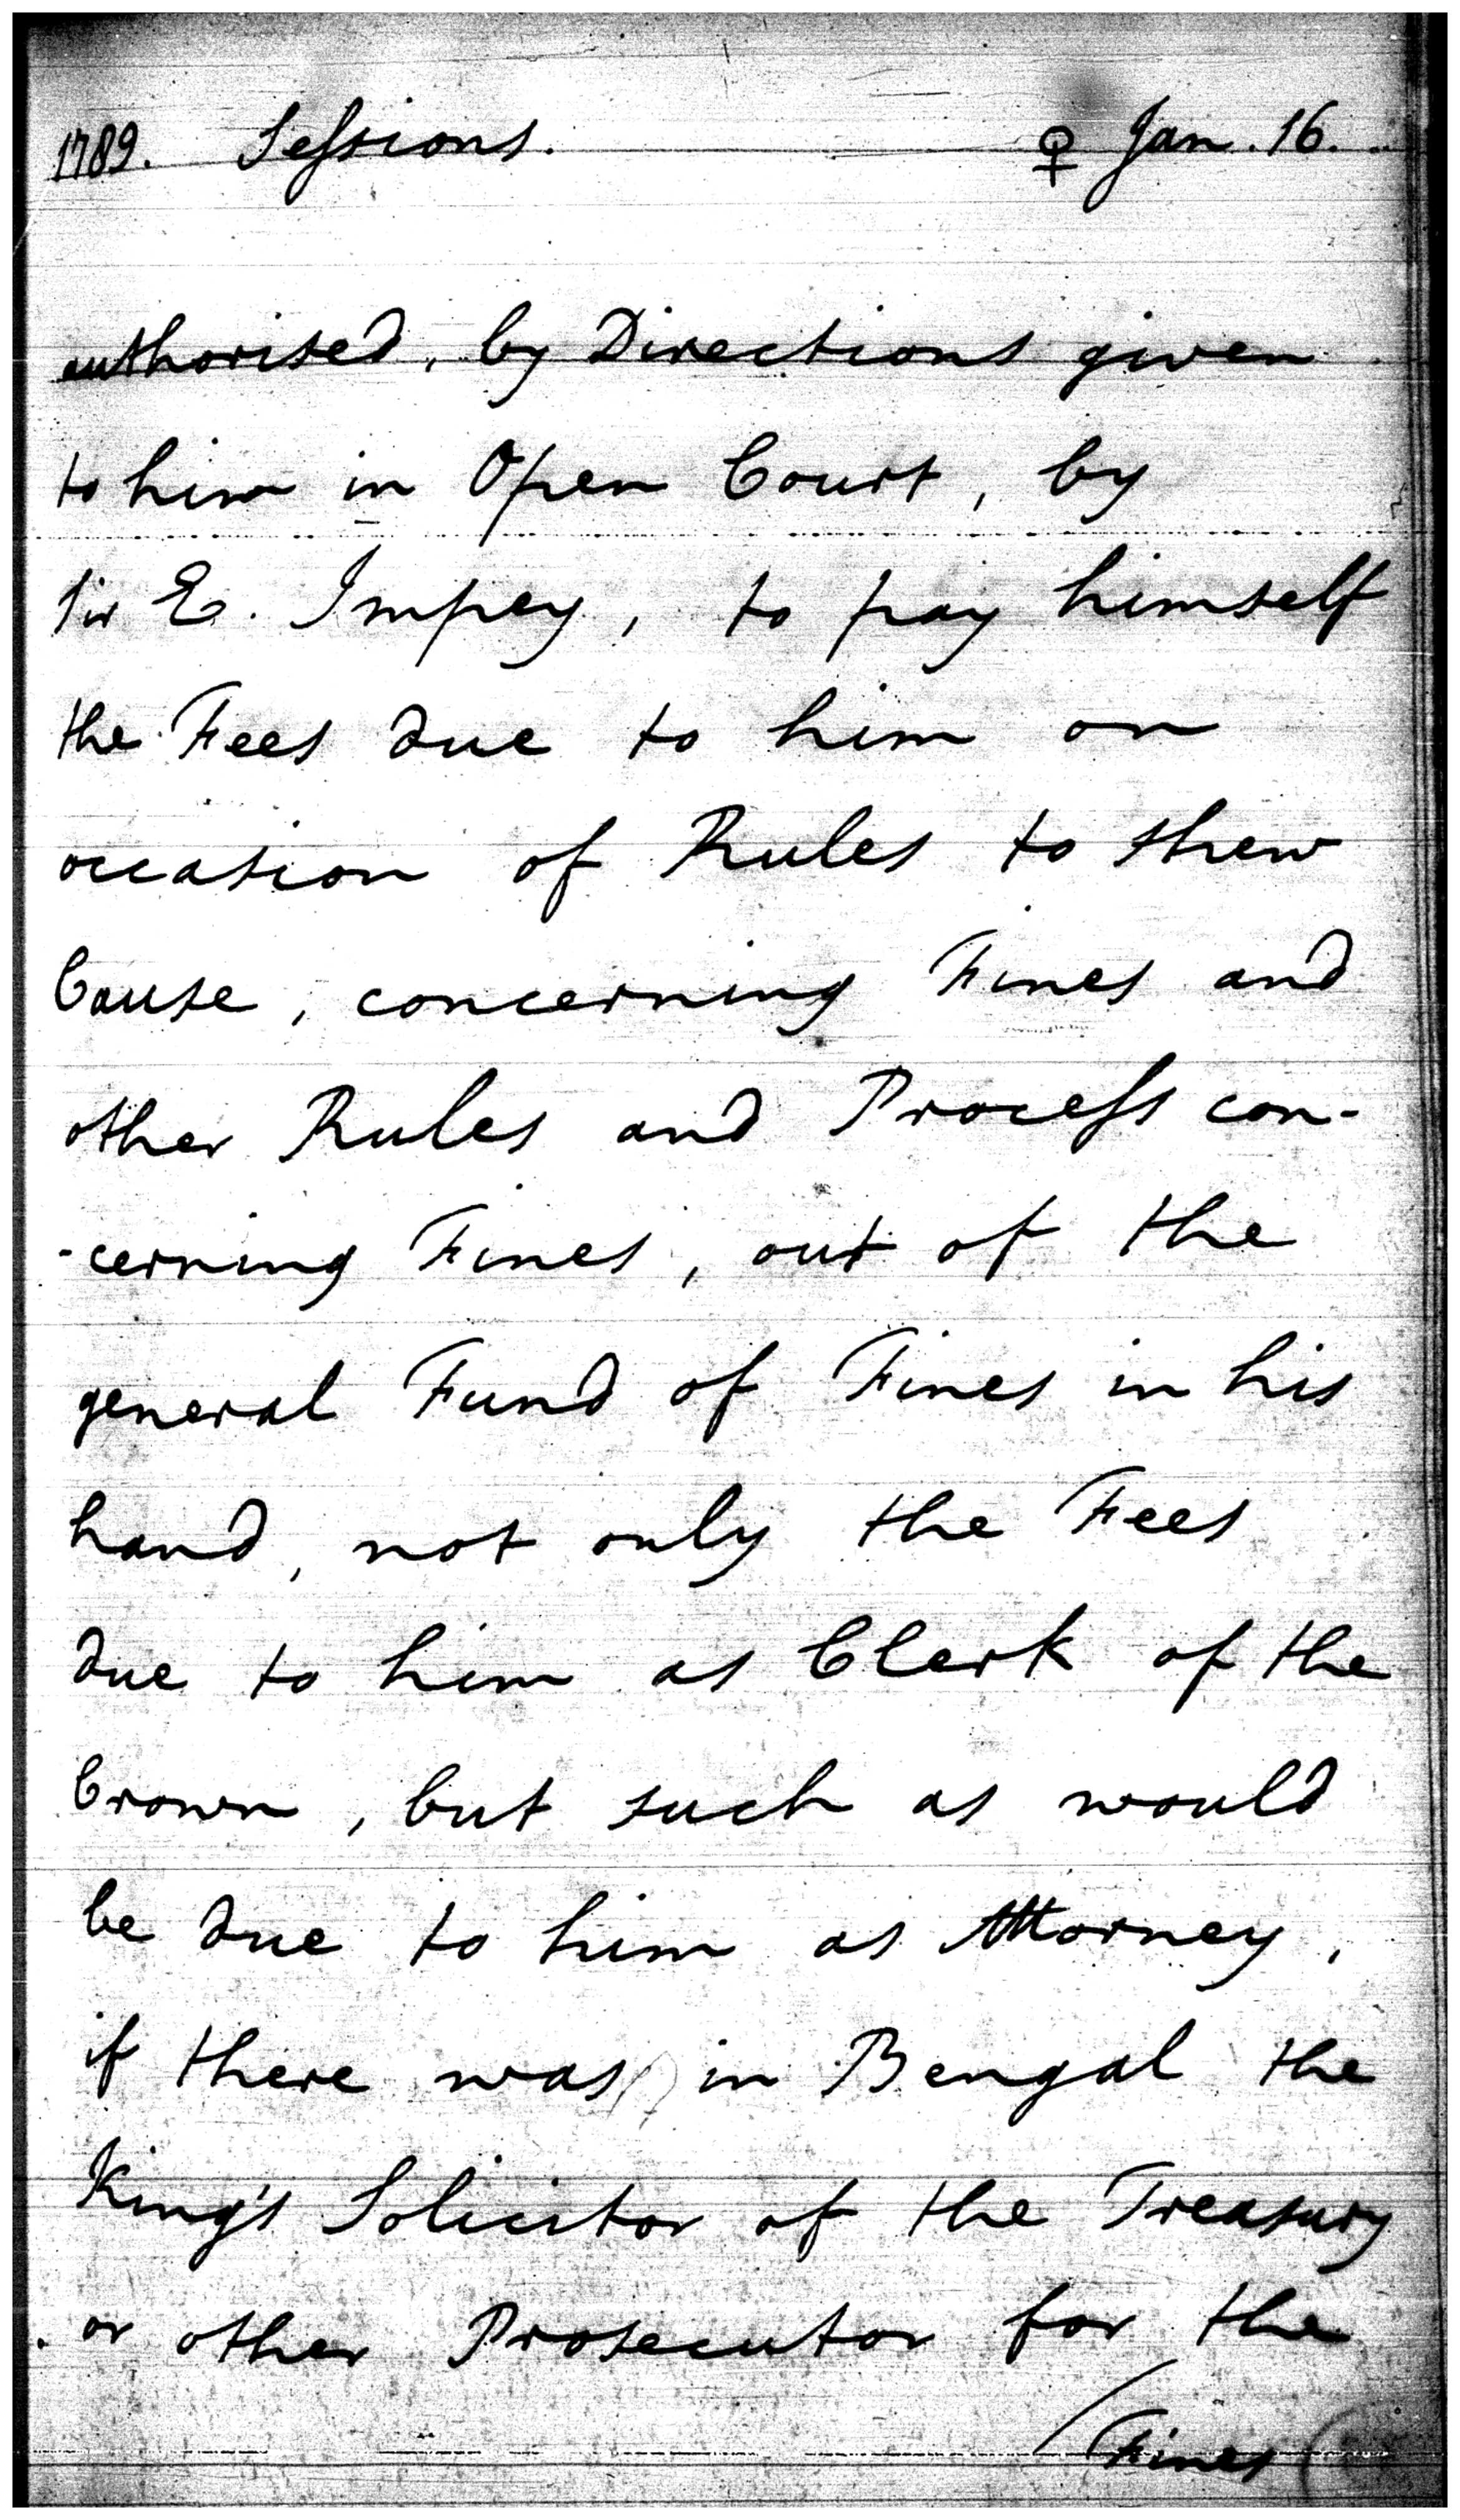 1789. Sessions. ♀ Jan. 16.
authorised, by Directions given
to him in Open Court, by
Sir E. Impey, to pay himself
the Fees due to him on
occasion of Rules to shew
Cause, concerning Fines and
other Rules and Process con-
-cerning Fines, out of the
general Fund of Fines in his
hand, not only the Fees
due to him as Clerk of the
Crown, but such as would
be due to him as Attorney,
if there was in Bengal the
King's Solicitor of the Treasury
or other Prosecutor for the
Fines